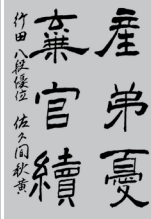 產弟憂
棄官續
行田 八段優位 佐久間秋黄